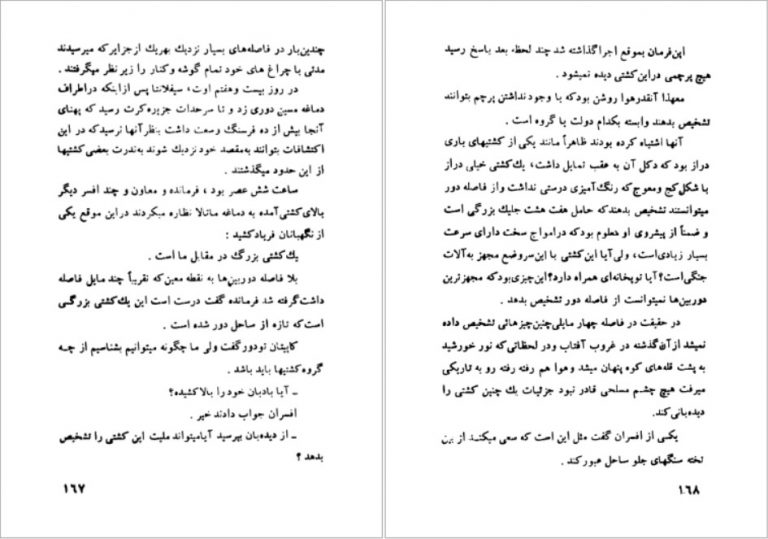 چندین‌بار در فاصله‌های بسیار نزدیك بهریك ازجزایرکه میرسیدند
مدتی با چراغ های خود تمام گوشه وکنار را زیر نظر میگرفتند .
در روز بیست وهفتم اوت، سیفلانتا پس ازاینکه دراطراف
دماغه مسین دوری زد و تا سرحدات جزیره‌کرت رسید که پهنای
آنجا بیش از ده فرسنگ وسعت داشت بنظر آنها نرسیدکه در این
اکتشافات بتوانند به‌مقصد خود نزدیك شوند به‌ندرت بعضی‌کشتیها
از این حدود میگذشتند .
ساعت شش عصر بود ، فرمانده و معاون و چند افسر دیگر
بالای‌کشتی‌آمده به دماغه ماتالا نظاره میکردند دراین موقع یکی
از نگهبانان فریادکشید :
یك‌کشتی بزرگ در مقابل ما است .
بلا فاصله دوربین‌ها به نقطه معین‌که تقریباً چند مایل فاصله
داشت‌گرفته شد فرمانده گفت درست است این یك‌کشتی بزرگی
است‌که تازه از ساحل دور شده است .
کاپیتان تودورگفت ولی ما چگونه میتوانیم بشناسیم از چه
گروه‌کشتیها باید باشد .
ـ آیا بادبان خود را بالاکشیده؟
افسران جواب دادند خیر .
ـ از دیده‌بان بپرسید آیامیتواند ملیت این کشتی را تشخیص
بدهد ؟
۱۶۷
این‌فرمان بموقع اجراگذاشته شد چند لحظه بعد پاسخ رسید
هیچ پرچمی دراین‌کشتی دیده نمیشود .
معهذا آنقدرهوا روشن بودکه با وجود نداشتن پرچم بتوانند
تشخیص بدهند وابسته بکدام دولت یا گروه است .
آنها اشتباه کرده بودند ظاهراً مانند یکی از کشتیهای باری
دراز بود که دکل آن به عقب تمایل داشت، یك‌کشتی خیلی دراز
با شکل‌کج ومعوج‌که رنگ‌آمیزی درستی نداشت واز فاصله دور
میتوانستند تشخیص بدهندکه حامل هفت هشت جلیك بزرگی است
و ضمناً از پیشروی او معلوم بودکه درامواج سخت دارای سرعت
بسیار زیادی‌است، ولی‌آیا این‌کشتی با این‌سروضع مجهز به‌آلات
جنگی‌است؟ آیا توپخانه‌ای همراه دارد؟ این‌چیزی‌بودکه مجهزترین
دوربین‌ها نمیتوانست از فاصله دور تشخیص بدهد .
در حقیقت در فاصله چهار مایلی‌چنین‌چیزهائی تشخیص داده
نمیشد ازآن‌گذشته در غروب آفتاب ودر لحظاتی‌که نور خورشید
به پشت قله‌های کوه پنهان میشد وهوا هم رفته رفته رو به تاریکی
میرفت هیچ چشم مسلحی قادر نبود جزئیات یك چنین کشتی را
دیده‌بانی‌کند.
یکی از افسران گفت مثل این است که سعی میکند از بین
تخته سنگهای جلو ساحل عبورکند .
۱۶۸